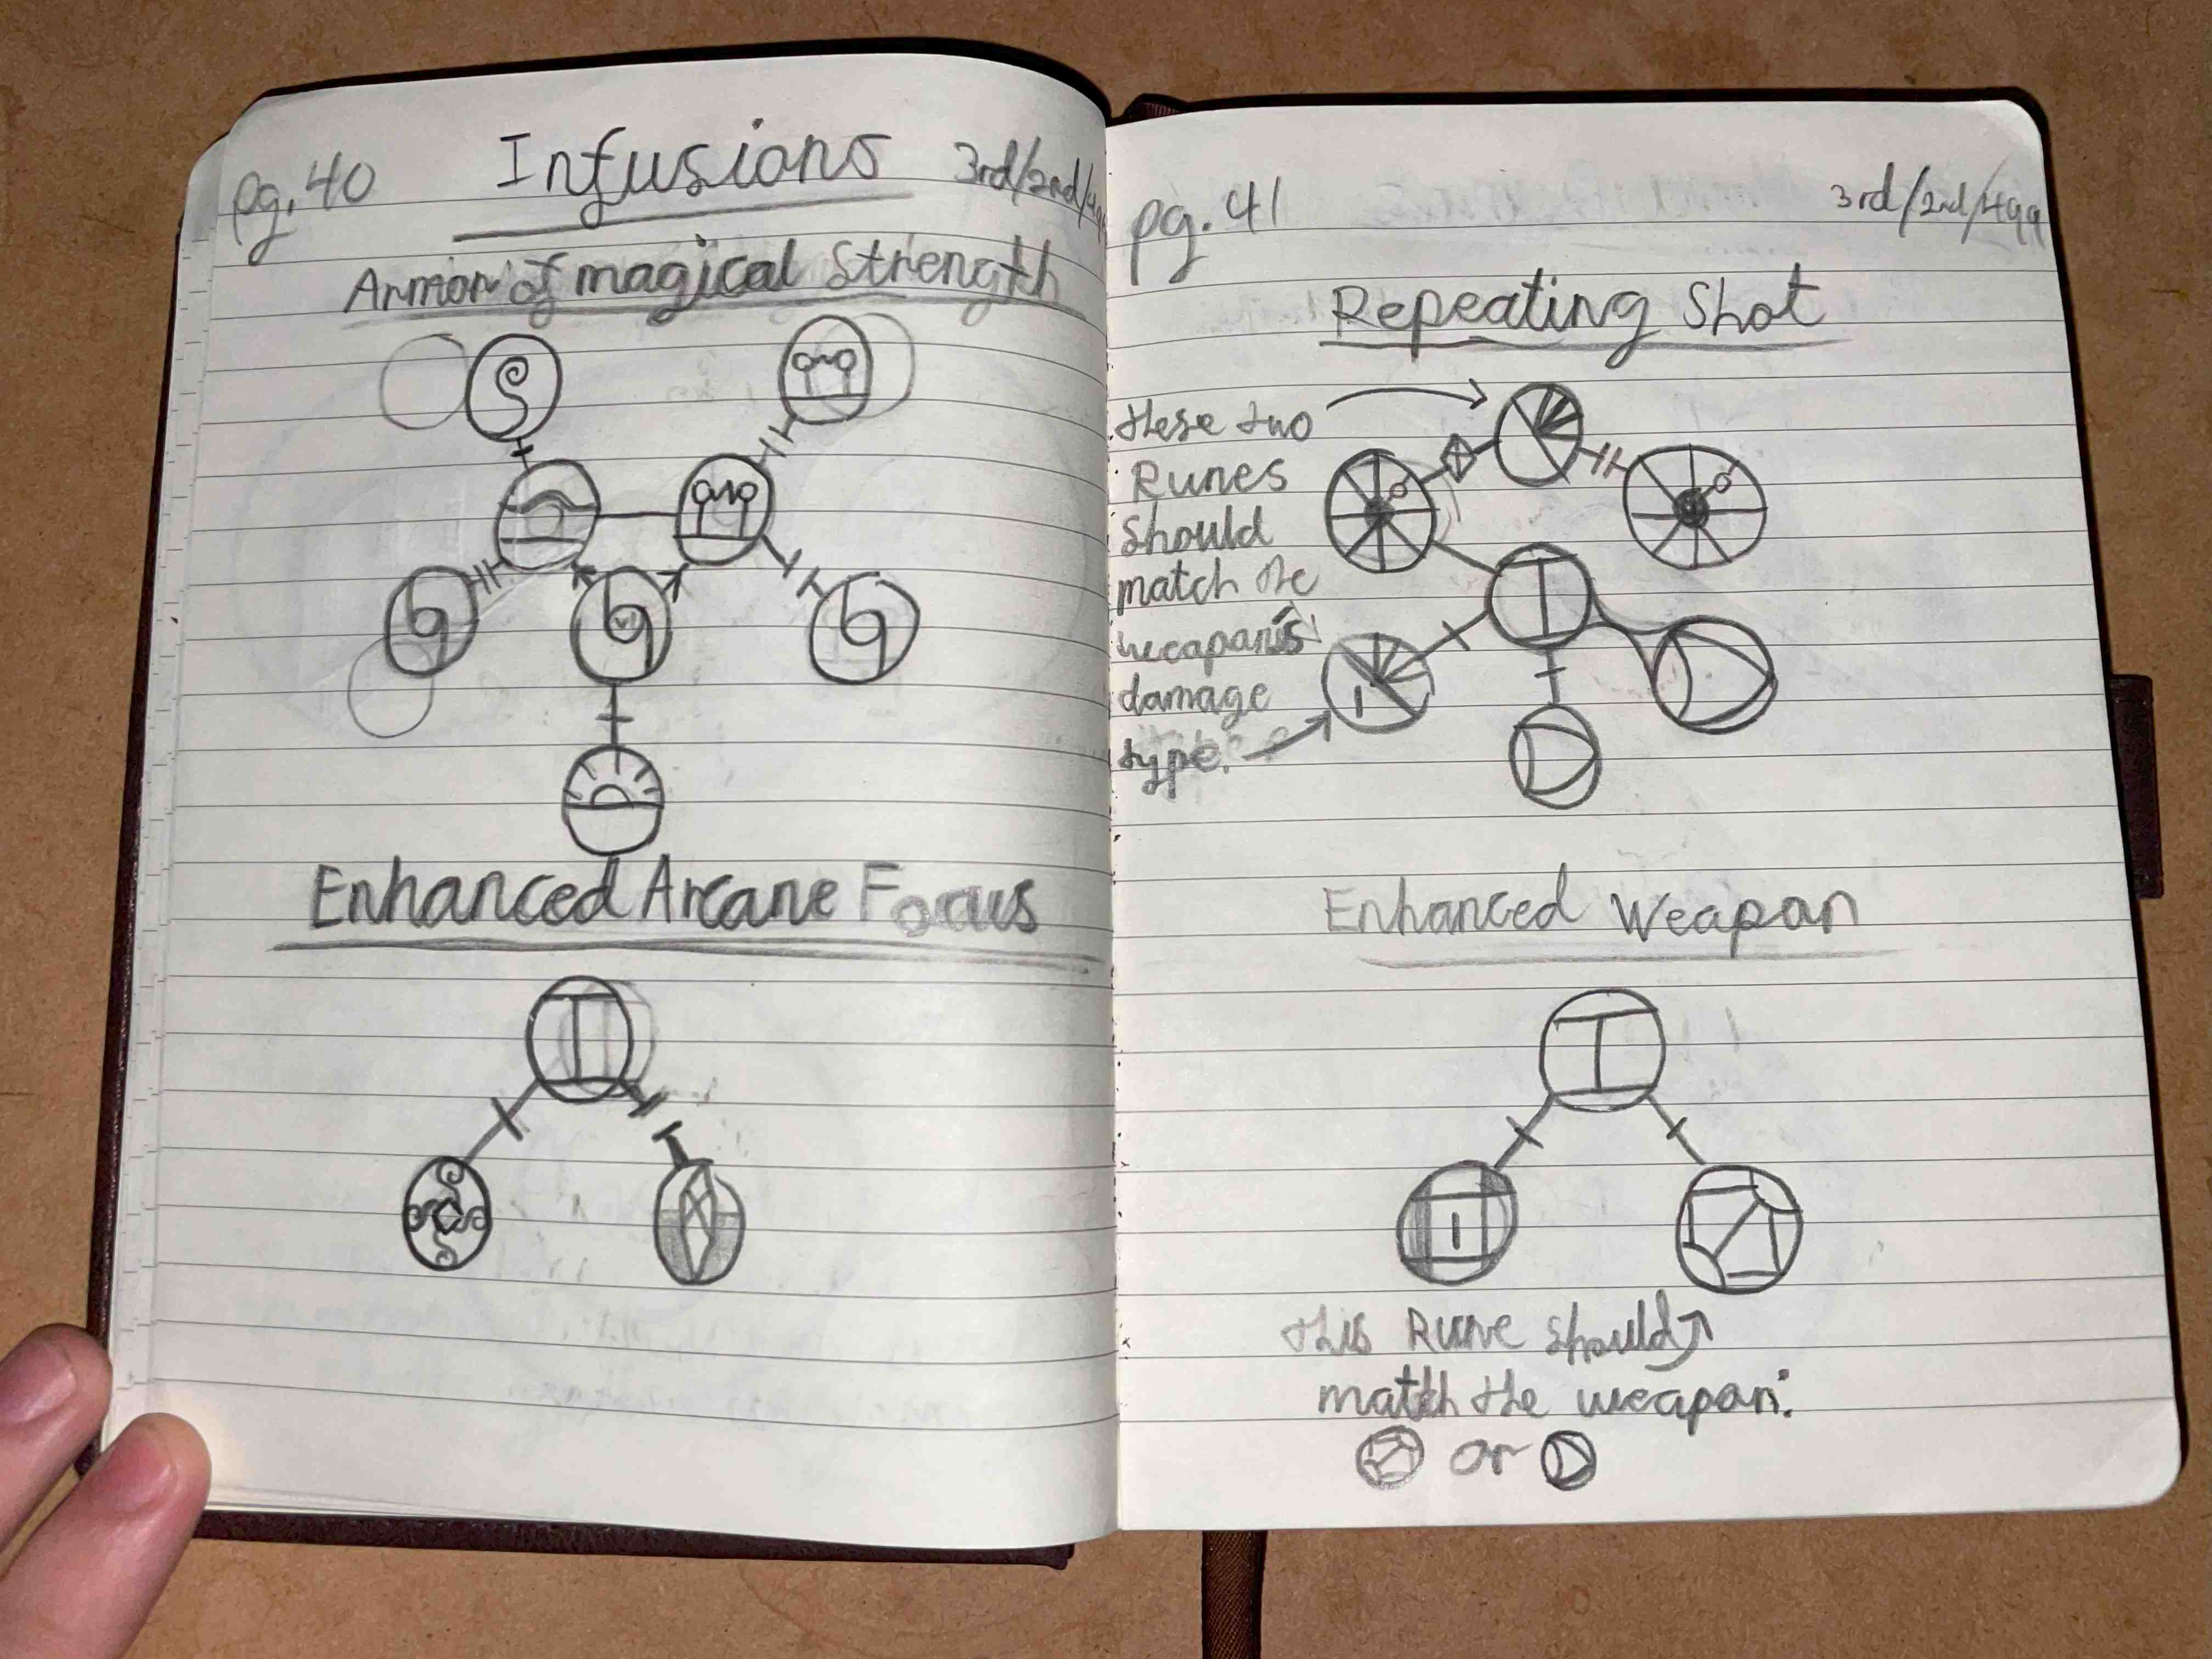 pg. 40
Infusions
3rd/2nd/49
Armor of magical Strength
Enhanced Arcane Focus
pg. 41
3rd/2nd/499
Repeating Shot
these two
Runes
Should
match the
weapon's
damage
type.
Enhanced Weapon
this Rune should
match the weapon:
or